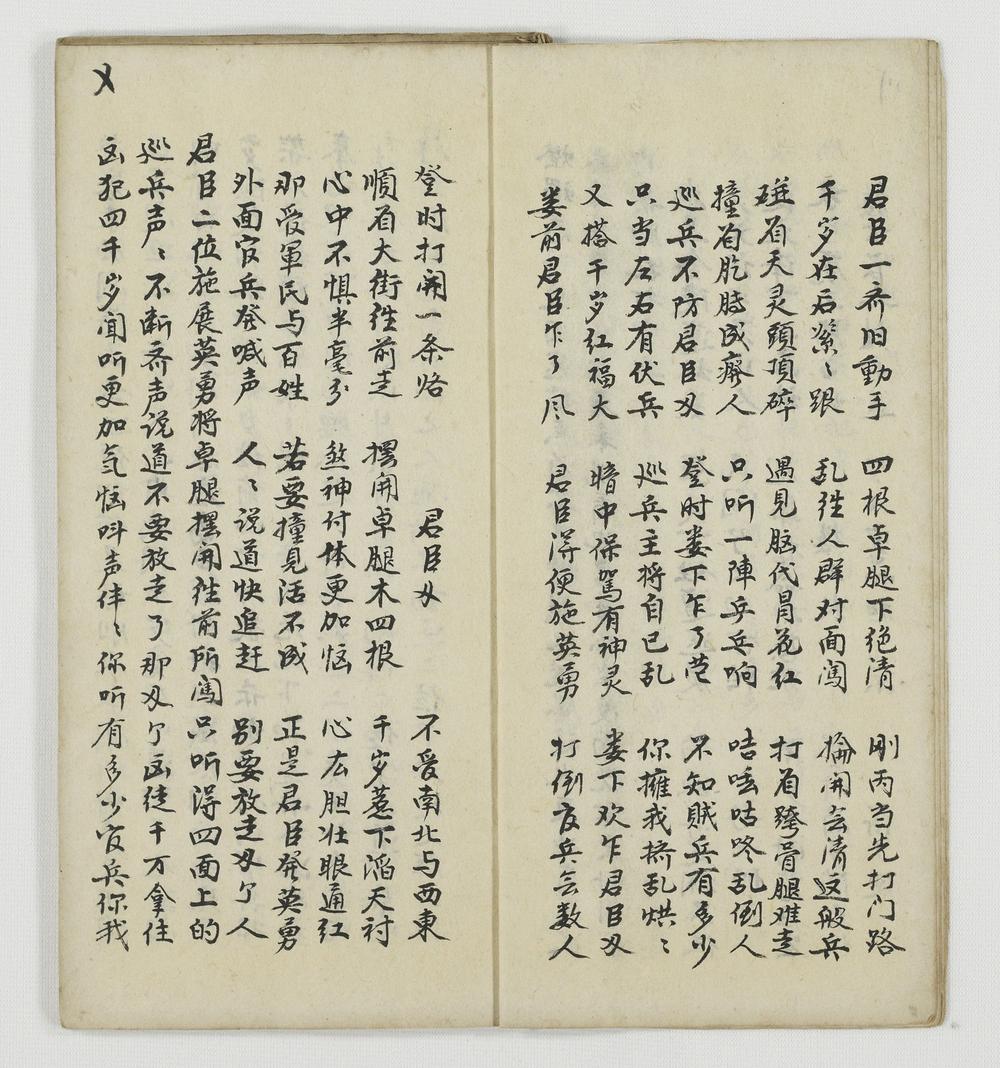 君臣一斎旧動手 四根卓腿下绝清 刚丙当先打门路
千岁在后紧〻跟 乱徃人群对面闯 掄開会清这般兵
碰着天灵頭頂碎 遇見脑代冒花红 打着跨骨腿难走
撞着肐膊成瘸人 只听一陣乒乓响 咭咚咕咚乱倒人
巡兵不防君臣㕛 登时娄下乍了营 不知贼兵有多少
只当左右有伏兵 巡兵主将自己乱 你擁我挤乱烘〻
又搭千岁红福大 暗中保駕有神灵 娄下欢乍君臣㕛
娄前君臣乍了风 君臣淂便施英勇 打倒官兵会数人
〤
登时打開一条路 君臣㕛 不爱南北与西東
順着大街徃前走 摆開卓腿木四根 千岁惹下滔天祸
心中不惧半毫分 煞神付体更加恼 心広胆壮眼通红
那受軍民与百姓 若要撞見活不成 正是君臣發英勇
外面官兵發喊声 人〻说道快追赶 别要放走㕛个人
君臣二位施展英勇将卓腿摆開徃前所闯只听淂四面上的
巡兵声〻不断斎声说道不要放走了那㕛个凶徒千万拿住
凶犯四千岁闻听更加气恼呌声伴〻你听有多少官兵你我